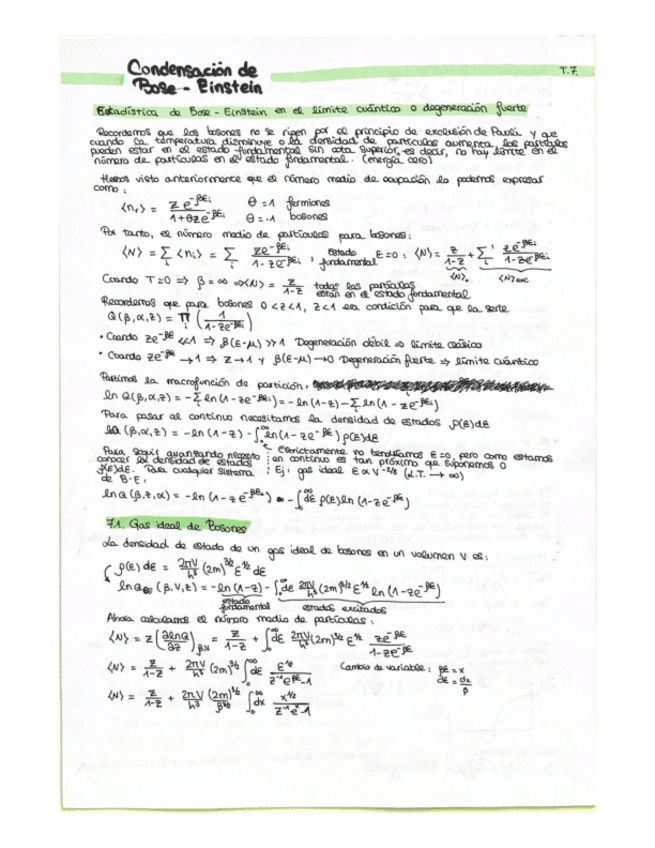 Condensación de
Bose - Einstein
T.7.
Estadística de Bose - Einstein en el límite cuántico o degeneración fuerte
Recordemos que los bosones no se rigen por el principio de exclusión de Pauli y que
cuando la temperatura disminuye o la densidad de partículas aumenta las partículas
pueden estar en el estado fundamental sin cota superior, es decir, no hay límite en el
número de partículas en el estado fundamental. (energía cero)
Hemos visto anteriormente que el número medio de ocupación lo podemos expresar
como:
⟨nᵣ⟩ = ze^{-βEᵢ} / (1+θze^{-βEᵢ}) θ = 1 fermiones
θ = -1 bosones
Por tanto, el número medio de partículas para bosones:
⟨N⟩ = Σᵢ ⟨nᵢ⟩ = Σᵢ ze^{-βEᵢ} / (1-ze^{-βEᵢ}) , Estado fundamental E=0 : ⟨N⟩ = z/(1-z) + Σᵢ' ze^{-βEᵢ} / (1-ze^{-βEᵢ})
⟨N⟩₀ ⟨N⟩exc
Cuando T=0 ⇒ β = ∞ ⇒ ⟨N⟩ = z/(1-z) todas las partículas
están en el estado fundamental
Recordemos que para bosones 0<z<1, z<1 era condición para que la serie
Q(β,α,z) = Πᵢ (1 / (1-ze^{-βEᵢ}))
• Cuando ze^{-βE} ≪1 ⇒ β(E-μ) ≫1 Degeneración débil ⇒ límite clásico
• Cuando ze^{-βE} → 1 ⇒ z→1 y β(E-μ) → 0 Degeneración fuerte ⇒ límite cuántico
Partimos la macrofunción de partición,
ln Q(β,α,z) = -Σᵢ ln(1-ze^{-βEᵢ}) = -ln(1-z) - Σᵢ ln(1-ze^{-βEᵢ})
Para pasar al continuo necesitamos la densidad de estados ρ(E)dE
lnQ(β,α,z) = -ln(1-z) - ∫₀^∞ ln(1-ze^{-βE}) ρ(E)dE
Para seguir avanzando necesito
conocer la densidad de estados
ρ(E)dE. Para cualquier sistema
de B-E:
Estrictamente no tendríamos E=0, pero como estamos
en continuo es tan próximo que suponemos 0
Ej: gas ideal E α V^{-2/3} (L.T. → ∞)
lnQ(β,z,α) = -ln(1-ze^{-βE₀}) - ∫₀^∞ dE ρ(E)ln(1-ze^{-βE})
7.1. Gas ideal de Bosones
La densidad de estado de un gas ideal de bosones en un volumen V es:
ρ(E)dE = 2πV/h³ (2m)^{3/2} E^{1/2} dE
lnQ (β,V,z) = -ln(1-z) - ∫₀^∞ dE 2πV/h³ (2m)^{3/2} E^{1/2} ln(1-ze^{-βE})
estado
fundamental estados excitados
Ahora calculamos el número medio de partículas:
⟨N⟩ = z(∂lnQ/∂z)_{β,V} = z/(1-z) + ∫₀^∞ dE 2πV/h³ (2m)^{3/2} E^{1/2} ze^{-βE} / (1-ze^{-βE})
⟨N⟩ = z/(1-z) + 2πV/h³ (2m)^{3/2} ∫₀^∞ dE E^{1/2} / (z⁻¹e^{βE}-1) Cambio de variable: βE = x
dE = dx/β
⟨N⟩ = z/(1-z) + 2πV/h³ (2m)^{3/2}/β^{3/2} ∫₀^∞ dx x^{1/2} / (z⁻¹eˣ-1)